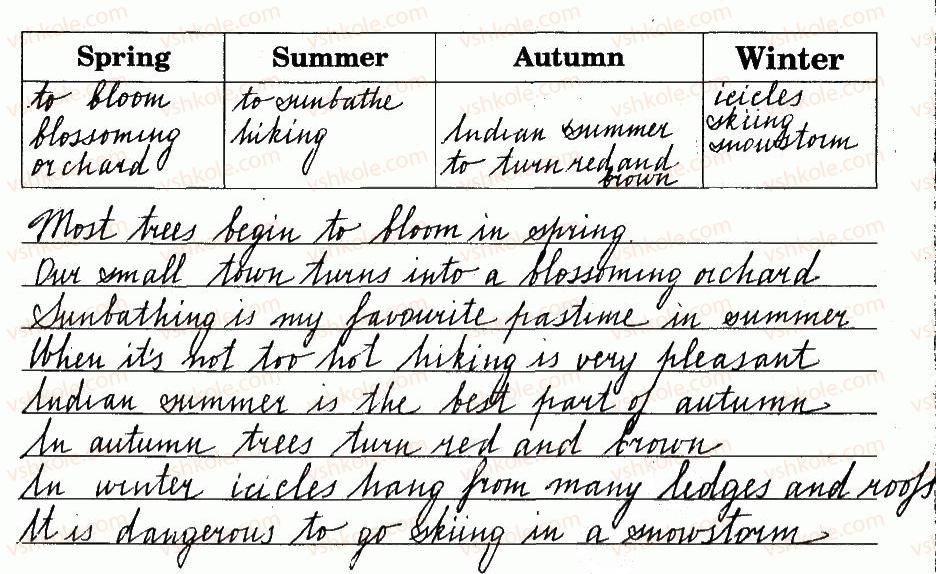 Spring Summer Autumn Winter
to bloom to sunbathe icicles
blossoming hiking Indian summer skiing
orchard to turn red and brown snowstorm
Most trees begin to bloom in spring.
Our small town turns into a blossoming orchard
Sunbathing is my favourite pastime in summer.
When it's not too hot hiking is very pleasant
Indian summer is the best part of autumn.
In autumn trees turn red and brown
In winter icicles hang from many ledges and roofs
It is dangerous to go skiing in a snowstorm.
vshkole.com